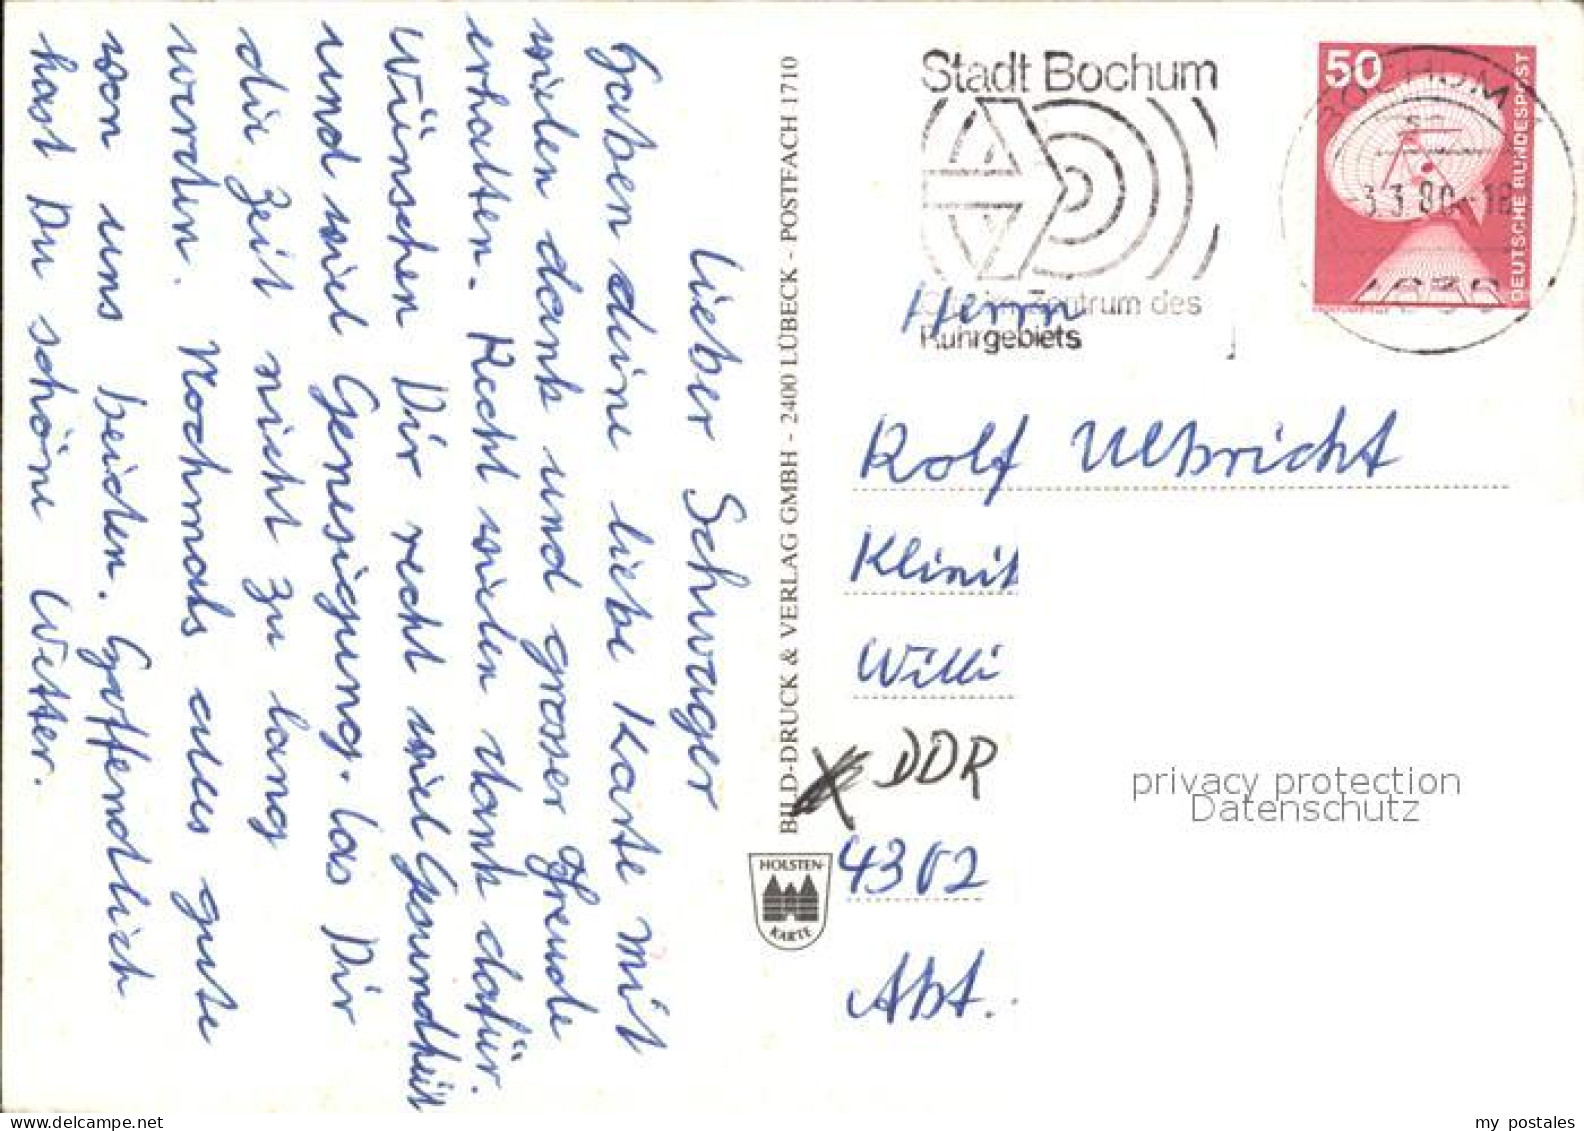 Lieber Schwager
Haben deine liebe Karte mit
vielen dank und grosser Freude
erhalten. Recht vielen dank dafür.
Wünschen Dir recht viel Gesundheit
und viel Genesigung. Las Dir
die Zeit nicht zu lang
werden. Nochmals alles gute
von uns beiden. Hoffendlich
hast Du schöne Wetter.
BILD-DRUCK & VERLAG GMBH - 2400 LÜBECK - POSTFACH 1710
HOLSTEN-
KARTE
Stadt Bochum
im Zentrum des
Ruhrgebiets
50
DEUTSCHE BUNDESPOST
BOCHUM
-3.3.80-18
4630
Herrn
Rolf Ulbricht
Klinik
Willi
DDR
4302
Abt.
privacy protection
Datenschutz
my postales